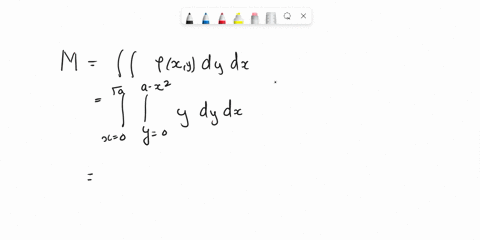 M = ∫∫ ρ(x,y) dy dx
= ∫_{x=0}^{√a} ∫_{y=0}^{a-x²} y dy dx
=